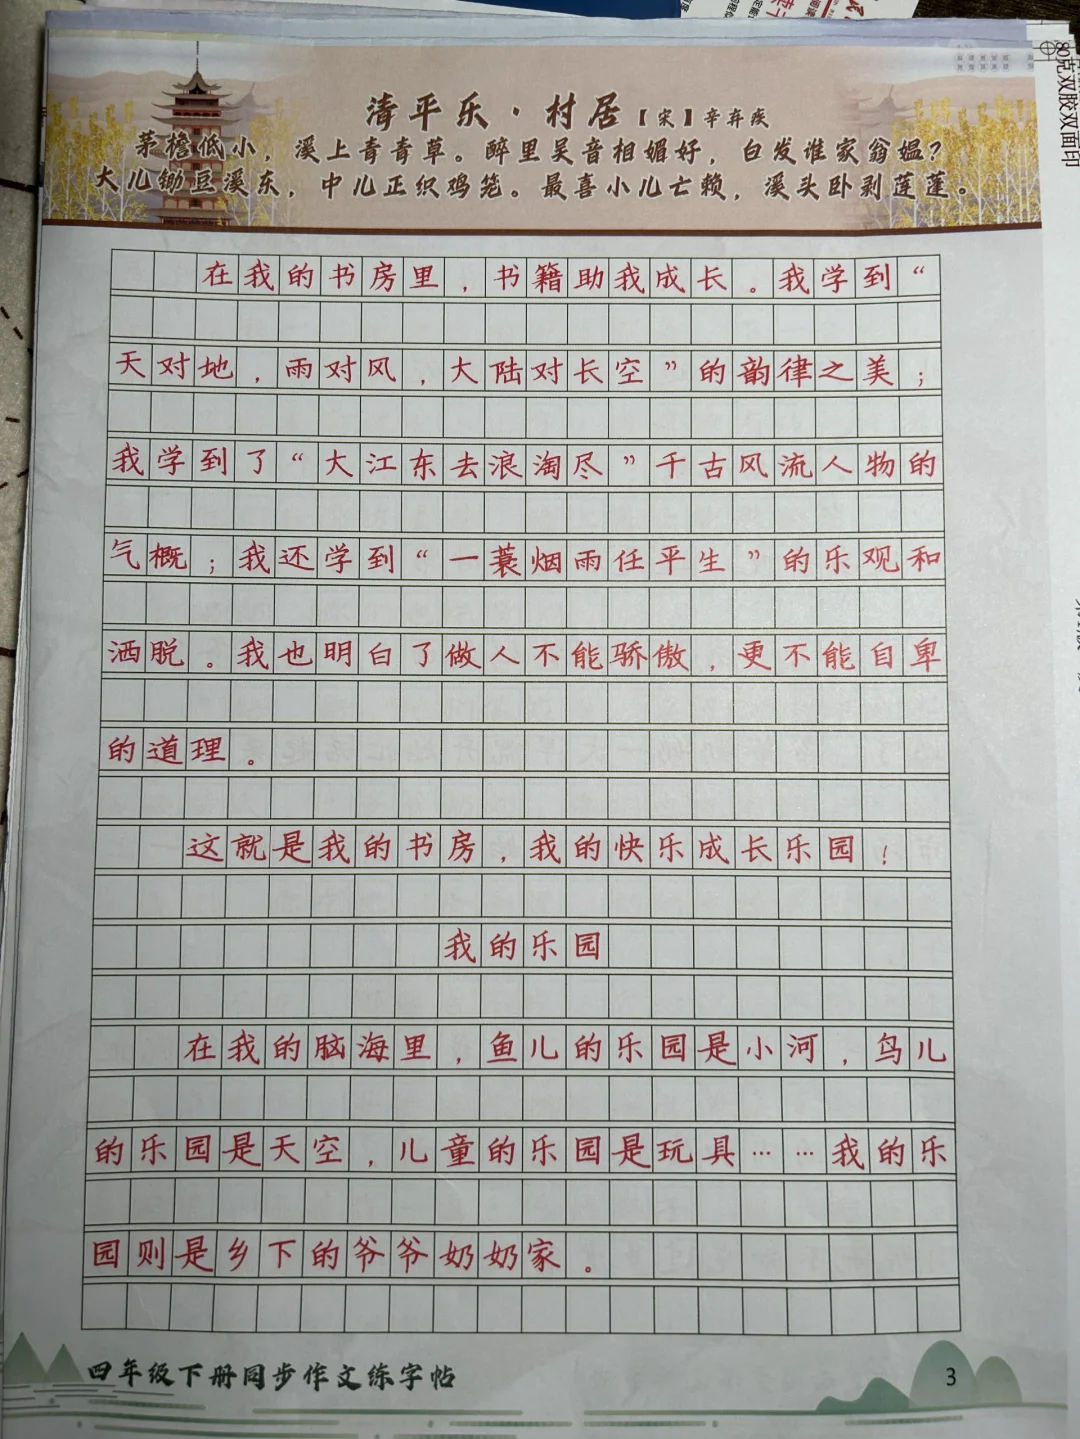 清平乐·村居【宋】辛弃疾
茅檐低小，溪上青青草。醉里吴音相媚好，白发谁家翁媪？
大儿锄豆溪东，中儿正织鸡笼。最喜小儿亡赖，溪头卧剥莲蓬。
在我的书房里，书籍助我成长。我学到“
天对地，雨对风，大陆对长空”的韵律之美；
我学到了“大江东去浪淘尽”千古风流人物的
气概；我还学到“一蓑烟雨任平生”的乐观和
洒脱。我也明白了做人不能骄傲，更不能自卑
的道理。
这就是我的书房，我的快乐成长乐园！
我的乐园
在我的脑海里，鱼儿的乐园是小河，鸟儿
的乐园是天空，儿童的乐园是玩具……我的乐
园则是乡下的爷爷奶奶家。
四年级下册同步作文练字帖
3
80克双胶双面印